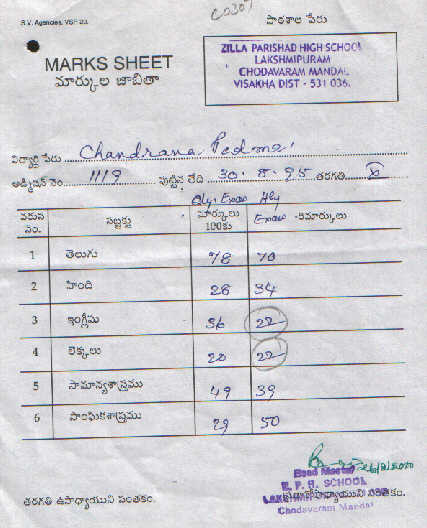 S.V. Agencies, VSP-20.
పాఠశాల పేరు
MARKS SHEET
మార్కుల జాబితా
ZILLA PARISHAD HIGH SCHOOL
LAKSHMIPURAM
CHODAVARAM MANDAL
VISAKHA DIST - 531 036.
విద్యార్థి పేరు Chandrana Padma
అడ్మిషన్ నెం. 1119 పుట్టిన తేది 30. 95 తరగతి
Qly. Exam Hly
వరుస నెం. సబ్జక్టు మార్కులు 100కు Exam రిమార్కులు
1 తెలుగు 78 70
2 హింది 28 34
3 ఇంగ్లీషు 36 22
4 లెక్కలు 20 22
5 సామాన్యశాస్త్రము 49 39
6 సాంఘికశాస్త్రము 29 50
Head Master
SCHOOL
తరగతి ఉపాధ్యాయుని సంతకం.
Chodavaram Mandal